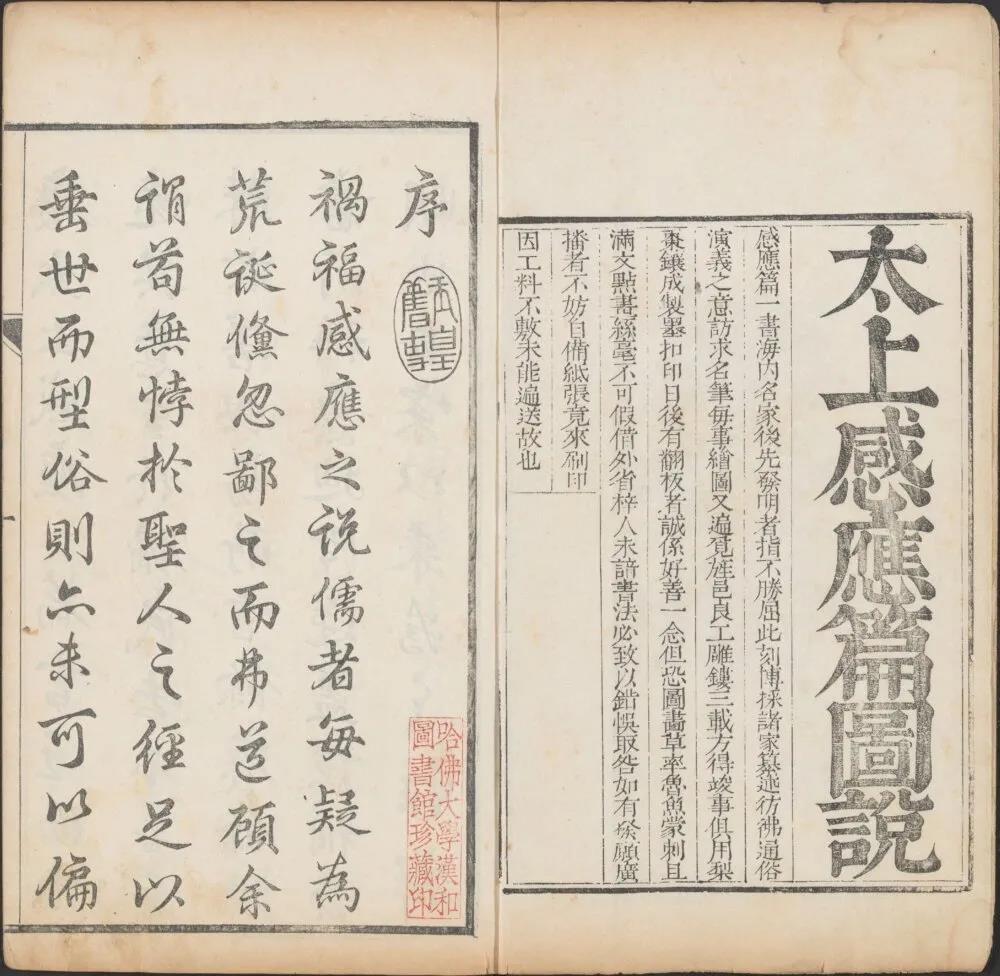 太上感應篇圖說
感應篇一書海内名家後先發明者指不勝屈此刻博採諸家纂述彷彿通俗
演義之意訪求名筆每事繪圖又遍覓旌邑良工雕鏤三載方得竣事俱用梨
棗鑲成製墨扣印日後有翻板者誠係好善一念但恐圖畫草率魯魚蒙刺且
滿文點畫絲毫不可假借外省梓人未諳書法必致以錯悞取咎如有發願廣
播者不妨自備紙張竟來刷印
因工料不敷未能遍送故也
序
哈佛大學漢和
圖書館珍藏印
禍福感應之説儒者每疑為
荒誕儻忽鄙之而弗道顧余
謂苟無悖於聖人之經足以
垂世而型俗則亦未可以偏